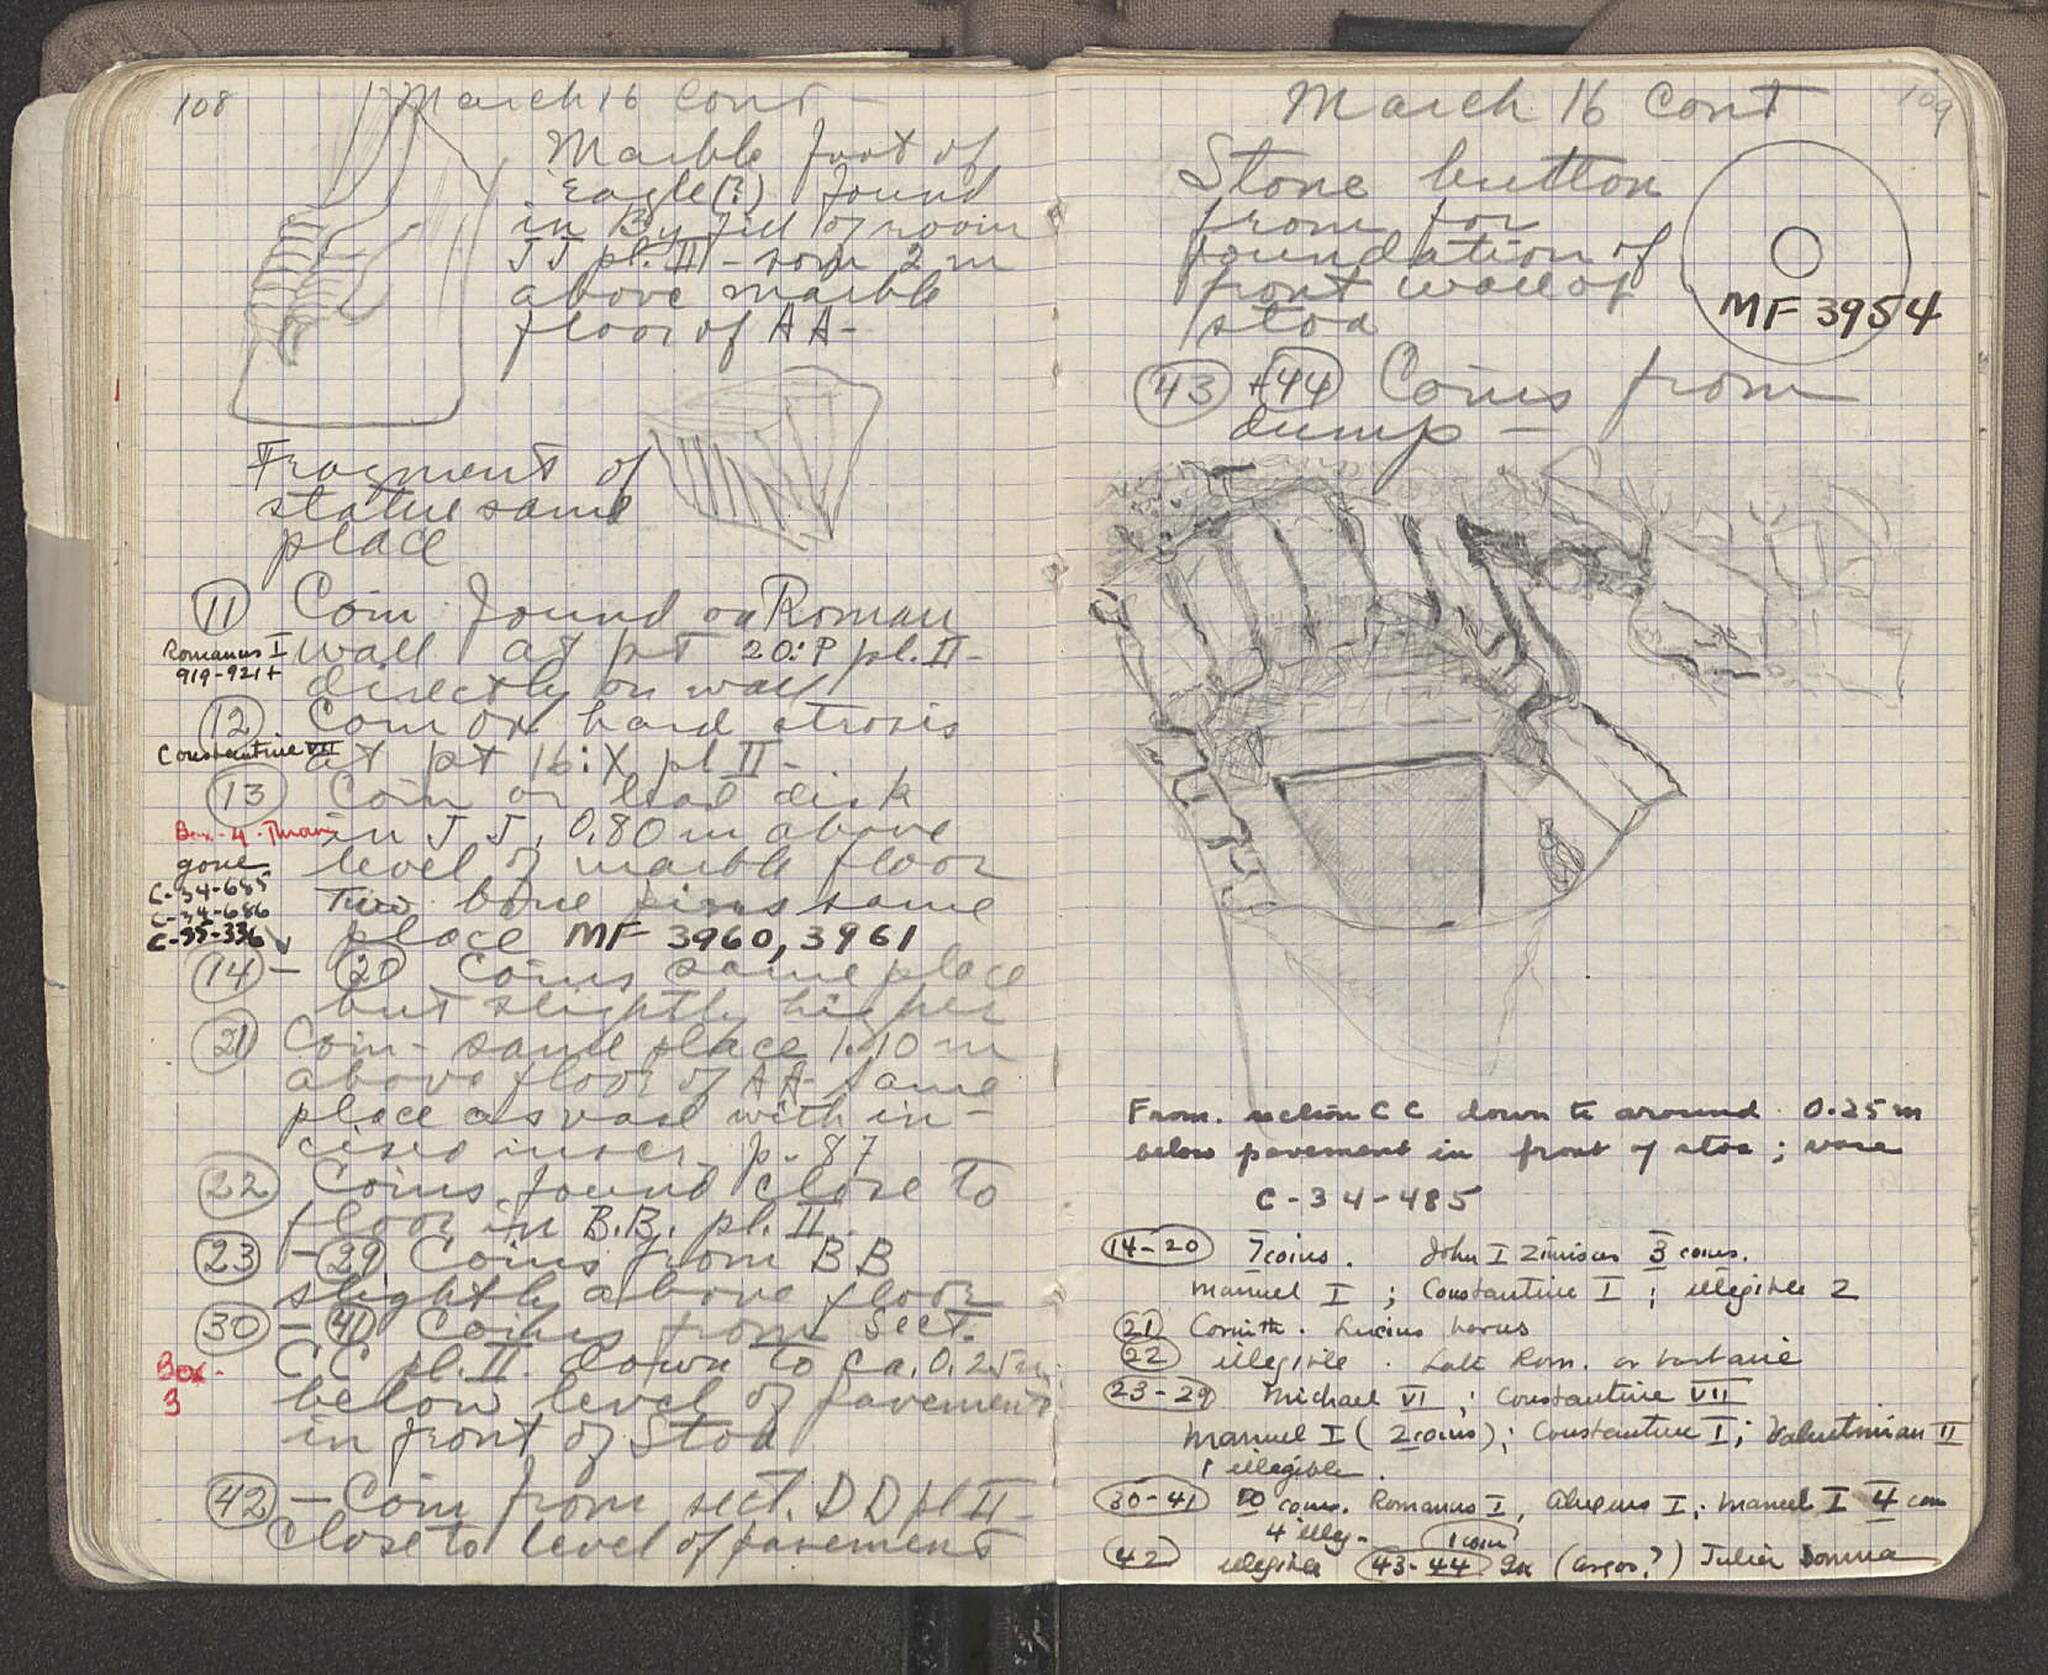 108
March 16 Cont -
Marble foot of
Eagle(?) found
in By fill of room
JJ pl. II - some 2 m
above marble
floor of AA-
Fragment of
statue same
place
11 Coin found on Roman
Romanus I
919-921+
wall at pt 20:P pl. II -
directly on wall
12 Coin on hard strosis
Constantine VII
at pt 16:X pl II -
13 Coin or lead disk
Box 4
in JJ, 0.80 m above
gone
level of marble floor
C-34-685
C-34-686
C-35-336
Two bone pins same
place MF 3960, 3961
14 - 20 Coins same place
but slightly higher
21 Coin - same place 1.10 m
above floor of AA same
place as vase with in-
cised inscr. p. 87
22 Coins found close to
floor in B.B. pl. II.
23 - 29 Coins from BB
slightly above floor
30 - 41 Coins from Sect.
Box
3
CC pl. II. down to ca. 0.25 m
below level of pavement
in front of Stoa
42 - Coin from sect. DD pl II -
close to level of pavement
109
March 16 Cont
Stone button
from for
foundation of
front wall of
stoa
MF 3954
43 + 44 Coins from
dump -
From section CC down to around 0.25 m
below pavement in front of stoa; vase
C-34-485
14-20 7 coins. John I Zimisces 3 coins.
Manuel I; Constantine I; illegible 2
21 Corinth. Lucius Verus
22 illegible. Late Rom. or
23-29 Michael VI; Constantine VII
Manuel I (2 coins); Constantine I; Valentinian II
1 illegible.
30-41 10 coins. Romanus I, Alexius I; Manuel I 4 coins
4 illeg-
42 illegible 43-44 1 coin Gk (Argos?) Julia Domna